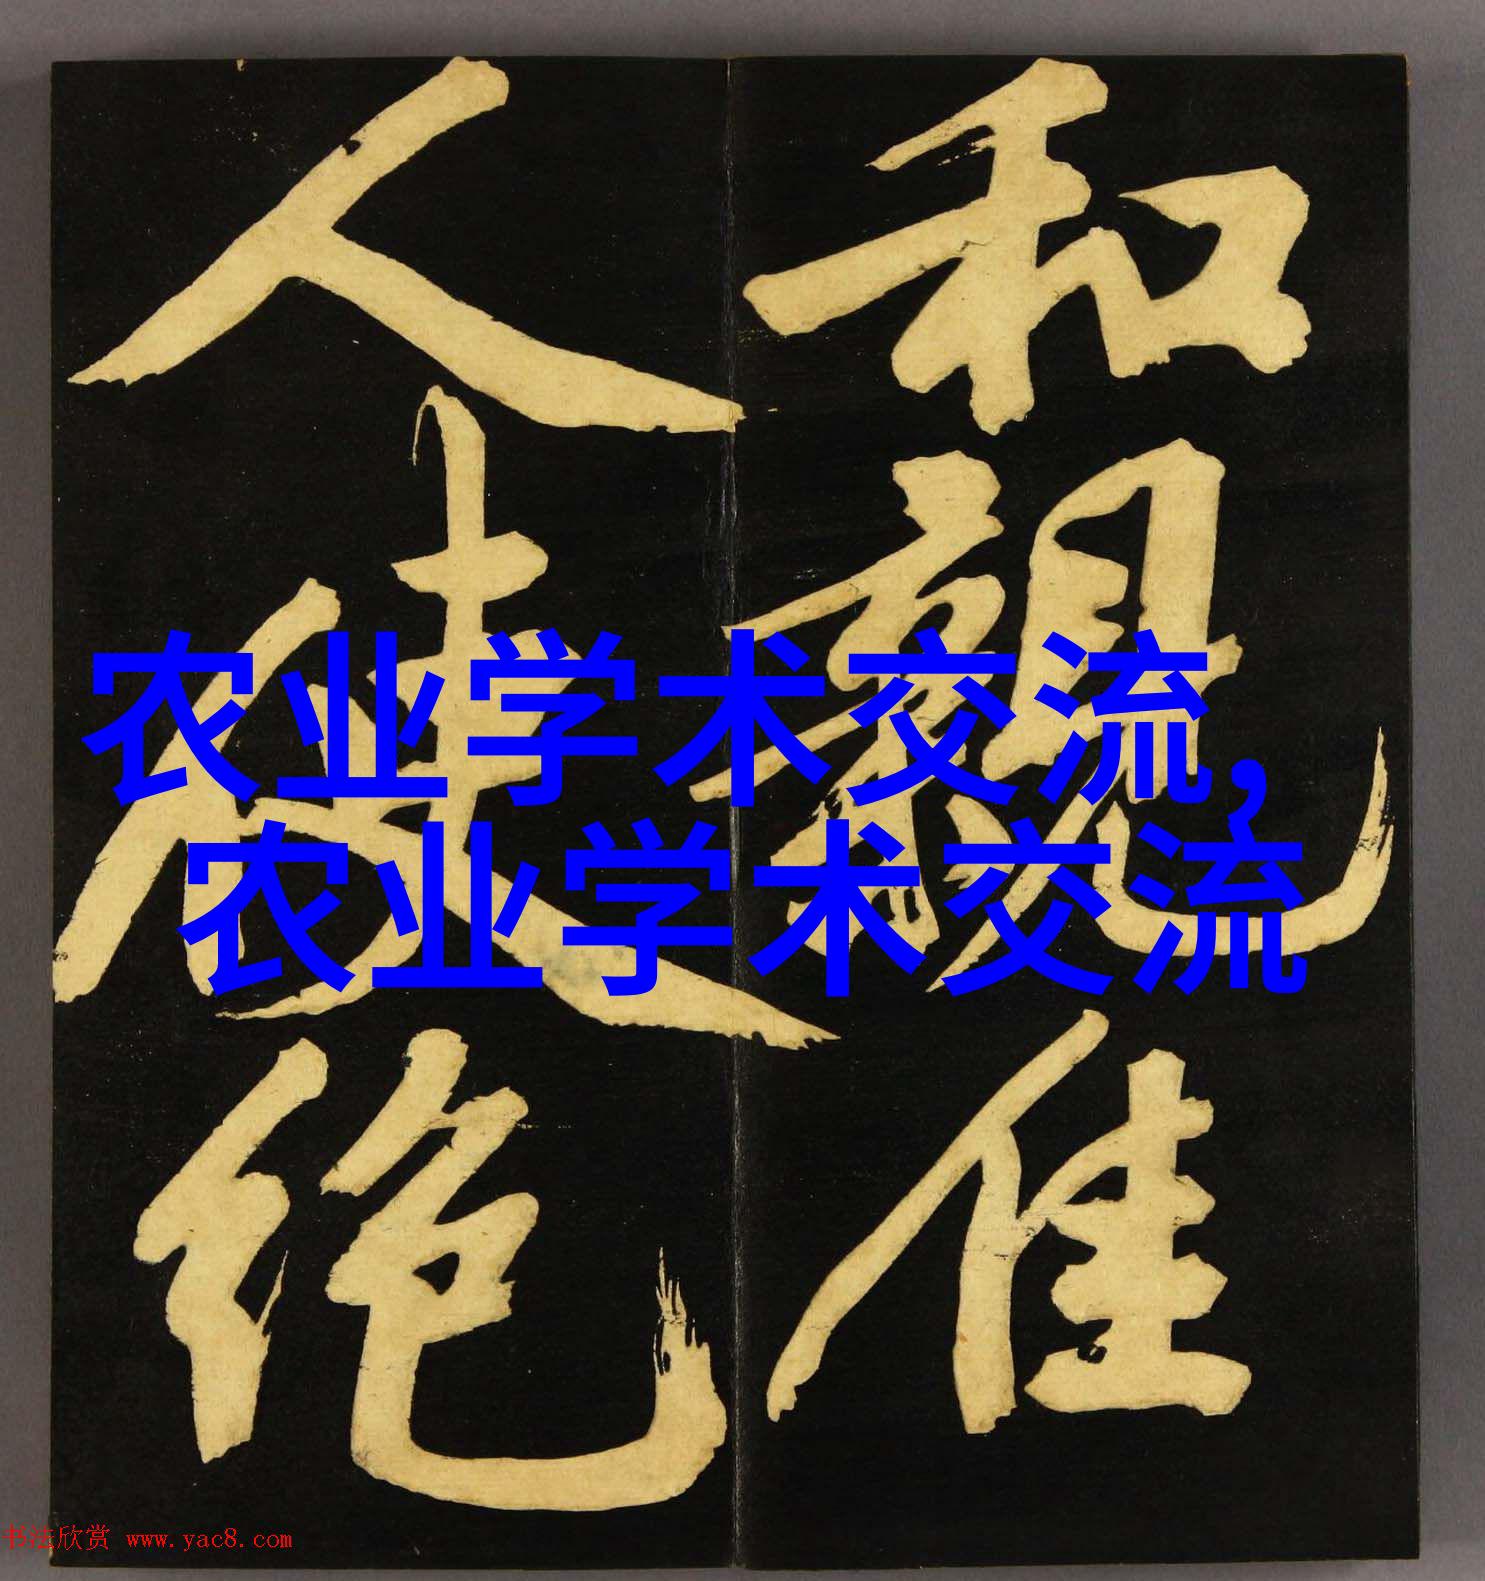 和親惟
人使絶
农业学术交流,
农业学术交流
书法欣赏 www.yac8.com